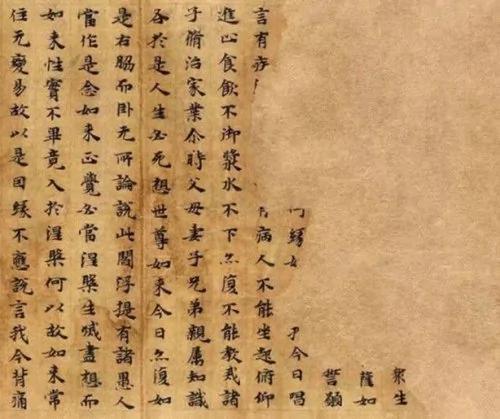 衆生
薩如
誓願
緣 今日唱
言有 病人不能坐起俯仰
進止食飲不御漿水不下亦復不能教戒諸
子脩治家業尒時父母妻子兄弟親屬知識
各於是人生必死想世尊如來今日亦復如
是右脇而卧无所論說此閻浮提有諸愚人
當作是念如來正覺必當涅槃生滅盡想而
如來性實不畢竟入於涅槃何以故如來常
住无變易故以是因緣不應說言我今背痛